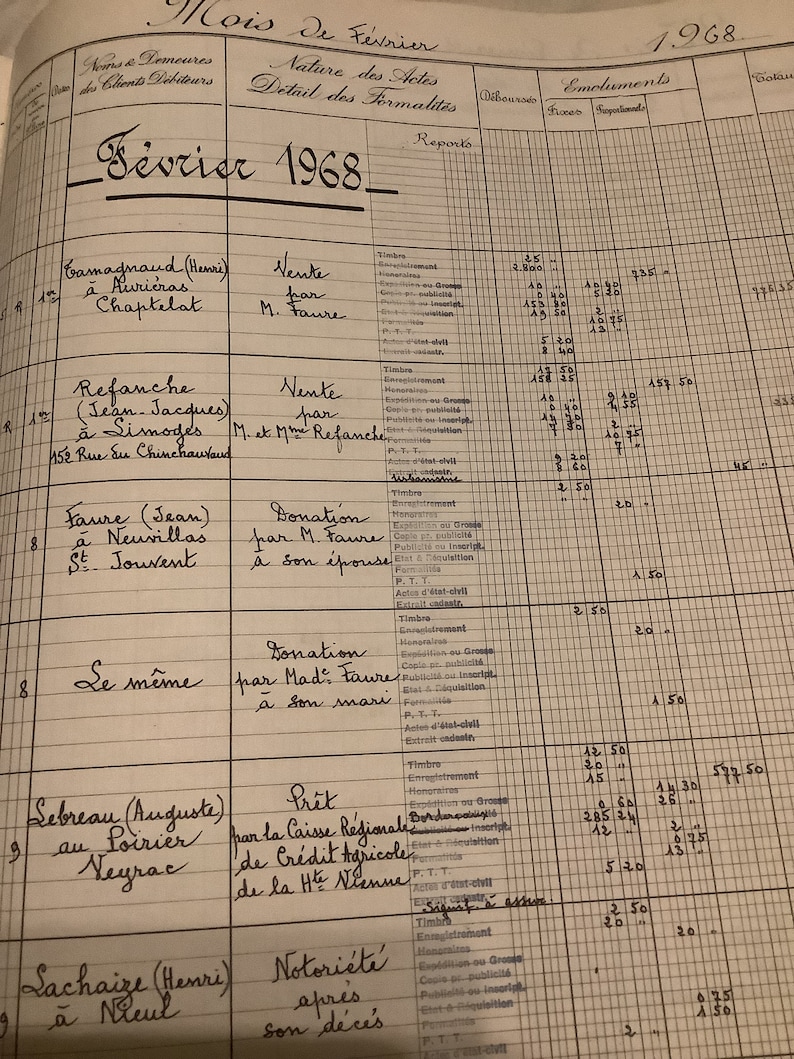 Mois de Février 1968
Dates
Noms & Demeures
des Clients Débiteurs
Nature des Actes
Détail des Formalités
Déboursés
Emoluments
Fixes
Proportionnels
Reports
Février 1968
R
1er
Tamagnaud (Henri)
à Auriéras
Chaptelat
Vente
par
M. Faure
Timbre 25 "
Enregistrement 2.800 "
Honoraires 735 "
Expédition ou Grosse 10 " 10 40
Copie pr. publicité 0 40 5 20
Publicité ou Inscript. 153 80
Etat & Réquisition 19 50 2 "
Formalités 10 75
P. T. T. 13 "
Actes d'état-civil 5 20
Extrait cadastr. 8 40
R
1er
Refanche
(Jean-Jacques)
à Limoges
152 Rue du Chinchauvaud
Vente
par
M. et Mme Refanche
Timbre 12 50
Enregistrement 158 25
Honoraires 157 50
Expédition ou Grosse 10 " 9 10
Copie pr. publicité 4 55
Publicité ou Inscript.
Etat & Réquisition 2 "
Formalités 10 75
P. T. T. 7 "
Actes d'état-civil 9 20
Extrait cadastr. 8 60
urbanisme 45 "
8
Faure (Jean)
à Neuvillas
St Jouvent
Donation
par M. Faure
à son épouse
Timbre 2 50
Enregistrement " "
Honoraires 20 "
Expédition ou Grosse
Copie pr. publicité
Publicité ou Inscript.
Etat & Réquisition
Formalités
P. T. T. 1 50
Actes d'état-civil
Extrait cadastr.
8
Le même
Donation
par Made Faure
à son mari
Timbre 2 50
Enregistrement
Honoraires 20 "
Expédition ou Grosse
Copie pr. publicité
Publicité ou Inscript.
Etat & Réquisition
Formalités
P. T. T. 1 50
Actes d'état-civil
Extrait cadastr.
9
Lebreau (Auguste)
au Poirier
Veyrac
Prêt
par la Caisse Régionale
de Crédit Agricole
de la Hte Vienne
Timbre 12 50
Enregistrement 20 "
Honoraires 15 " 577 50
Expédition ou Grosse 14 30
Bordereaux 0 60 26 "
Publicité ou Inscript. 285 24
Etat & Réquisition 12 " 2 "
Formalités 0 75
P. T. T. 13 "
Actes d'état-civil 5 20
Extrait cadastr.
Signif. à assur.
9
Lachaize (Henri)
à Nieul
Notoriété
après
son décès
Timbre 2 50
Enregistrement 20 "
Honoraires 20 "
Expédition ou Grosse
Copie pr. publicité
Publicité ou Inscript.
Etat & Réquisition 0 75
Formalités 1 50
P. T. T. 2 "
Actes d'état-civil